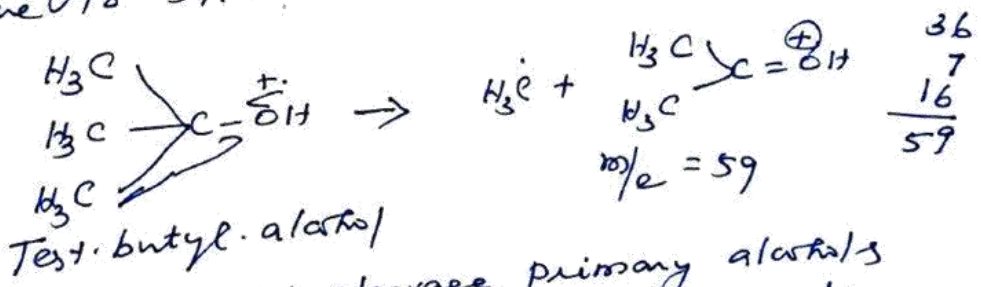 H3C
H3C - C - ȮH+. → H3Ċ + H3C C = ⊕OH
H3C H3C
m/e = 59
36
7
16
59
Test. butyl. alcohol
primary alcohols